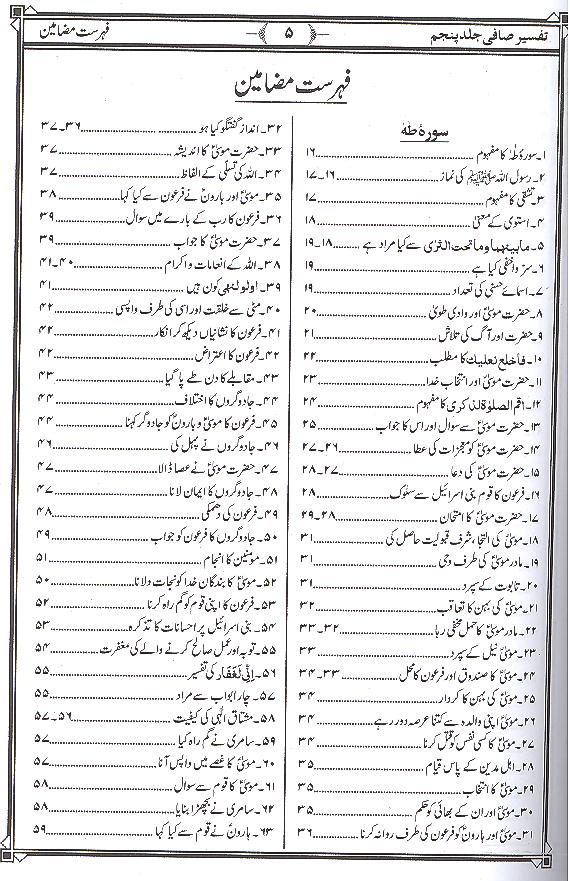 تفسیر صافی جلد پنجم
﴿۵﴾
فہرست مضامین
فہرست مضامین
سورۂ طٰہٰ
۱۔ سورۂ طٰہٰ کا مفہوم ۱۶
۲۔ رسول اللہ ﷺ کی نماز ۱۶۔۱۷
۳۔ تشقی کا مفہوم ۱۷
۴۔ استویٰ کے معنیٰ ۱۸
۵۔ مابینہما وما تحت الثری سے کیا مراد ہے ۱۸۔۱۹
۶۔ سِرّ و اخفی کیا ہے ۱۹
۷۔ اسمائے حسنی کی تعداد ۱۹
۸۔ حضرت موسیٰؑ اور وادی طویٰ ۲۰
۹۔ حضرت اور آگ کی تلاش ۲۱
۱۰۔ فاخلع نعلیک کا مطلب ۲۲
۱۱۔ حضرت موسیٰؑ اور انتخاب خدا ۲۳
۱۲۔ اقم الصلوٰۃ لذکری کا مفہوم ۲۴
۱۳۔ حضرت موسیٰؑ سے سوال اور اس کا جواب ۲۵
۱۴۔ حضرت موسیٰؑ کو معجزات کی عطا ۲۶۔۲۷
۱۵۔ حضرت موسیٰؑ کی دعا ۲۷۔۲۸
۱۶۔ فرعون کا قوم بنی اسرائیل سے سلوک ۲۸
۱۷۔ حضرت موسیٰؑ کا امتحان ۲۸۔۲۹
۱۸۔ موسیٰؑ کی التجاء شرف قبولیت حاصل کی ۳۱
۱۹۔ مادر موسیٰؑ کی طرف وحی ۳۱
۲۰۔ تابوت کے سپرد ۳۱
۲۱۔ موسیٰؑ کی بہن کا تعاقب ۳۲
۲۲۔ مادر موسیٰؑ کا حمل مخفی رہا ۳۲۔۳۳
۲۳۔ موسیٰؑ نیل کے سپرد ۳۳
۲۴۔ موسیٰؑ کا صندوق اور فرعون کا محل ۳۳۔۳۴
۲۵۔ موسیٰؑ کی بہن کا کردار ۳۴
۲۶۔ موسیٰؑ اپنی والدہ سے کتنا عرصہ دور رہے ۳۴
۲۷۔ موسیٰؑ کا کسی نفس کو قتل کرنا ۳۴
۲۸۔ اہل مدین کے پاس قیام ۳۵
۲۹۔ موسیٰؑ کا انتخاب ۳۵
۳۰۔ موسیٰؑ اور ان کے بھائی کو حکم ۳۵
۳۱۔ موسیٰؑ اور ہارونؑ کو فرعون کی طرف روانہ کرنا ۳۶
۳۲۔ انداز گفتگو کیا ہو ۳۶۔۳۷
۳۳۔ حضرت موسیٰؑ کا اندیشہ ۳۷
۳۴۔ اللہ کی تسلّی کے الفاظ ۳۷
۳۵۔ موسیٰؑ اور ہارونؑ نے فرعون سے کیا کہا ۳۸
۳۶۔ فرعون کا رب کے بارے میں سوال ۳۹
۳۷۔ حضرت موسیٰؑ کا جواب ۳۹
۳۸۔ اللہ کے انعامات و اکرام ۴۰۔۴۱
۳۹۔ اولو النہی کون ہیں ۴۱
۴۰۔ مٹی سے خلقت اور اسی کی طرف واپسی ۴۲
۴۱۔ فرعون کا نشانیاں دیکھ کر انکار ۴۲
۴۲۔ فرعون کا اعتراض ۴۲
۴۳۔ مقابلے کا دن طے پا گیا ۴۳
۴۴۔ جادوگروں کا اختلاف ۴۴
۴۵۔ فرعون کا موسیٰؑ و ہارونؑ کو جادوگر کہنا ۴۴
۴۶۔ جادوگروں نے پہل کی ۴۶
۴۷۔ حضرت موسیٰؑ نے عصا ڈالا ۴۷
۴۸۔ جادوگروں کا ایمان لانا ۴۷
۴۹۔ فرعون کی دھمکی ۴۸
۵۰۔ جادوگروں کا فرعون کو جواب ۴۹
۵۱۔ مومنین کا انجام ۵۱
۵۲۔ موسیٰؑ کا بندگان خدا کو نجات دلانا ۵۰
۵۳۔ فرعون کا اپنی قوم کو گم راہ کرنا ۵۲
۵۴۔ بنی اسرائیل پر احسانات کا تذکرہ ۵۳
۵۵۔ توبہ اور عمل صالح کرنے والے کی مغفرت ۵۴
۵۶۔ اِنِّی لَغَفَّار کی تفسیر ۵۵
۵۷۔ چار ابواب سے مراد ۵۵
۵۸۔ مشتاق الٰہی کی کیفیت ۵۶۔۵۷
۵۹۔ سامری نے گم راہ کیا ۵۷
۶۰۔ موسیٰؑ کا غصے میں واپس آنا ۵۷
۶۱۔ موسیٰؑ کا قوم سے سوال ۵۸
۶۲۔ سامری نے بچھڑا بنایا ۵۸
۶۳۔ ہارونؑ نے قوم سے کیا کہا ۵۹